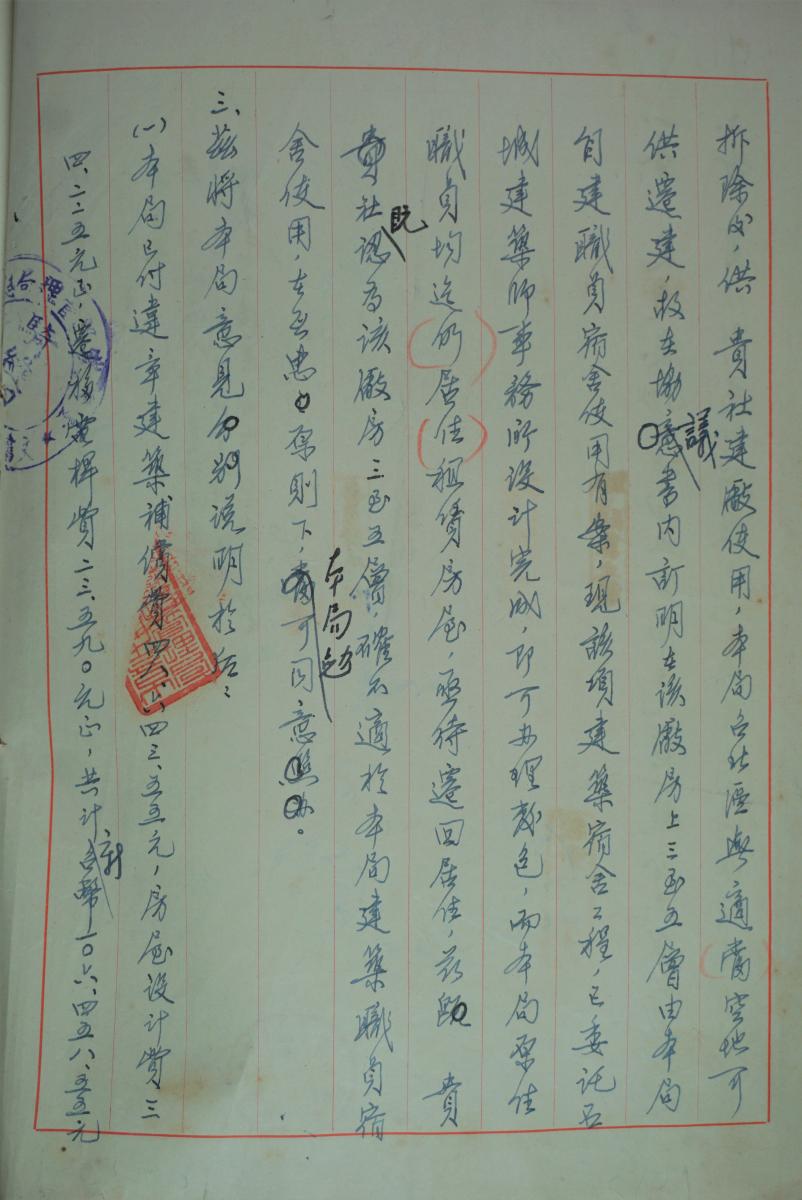 拆除後，供　貴社建廠使用，本局台北區無適當空地可
供遷建，故在協議書內訂明在該廠房上三至五層由本局
自建職員宿舍使用有案，現該項建築宿舍工程，已委託
城建築師事務所設計完成，即可办理發包，而本局原住
職員均迄仍居住租賃房屋，亟待遷回居住，茲　貴
貴社既認為該廠房三至五層，確不適於本局建築職員宿
舍使用，在　原則下，本局勉可同意。
三、茲將本局意見分別說明於后：
㈠本局已付違章建築補償費四八、六四三、五五元，房屋設計費三
四、二二五元正，遷移電桿費二三、五九〇元正，共計新台幣一〇六、四五八、五五元